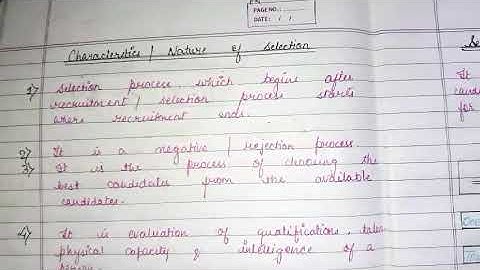 PAGE NO.:
DATE: / /
Characteristics / Nature of Selection
1) Selection process which begins after
recruitment / selection process starts
where recruitment ends.
2) It is a negative / rejection process.
3) It is the process of choosing the
best candidates from the available
candidates.
4) It is evaluation of qualifications, talen
physical capacity & intelligence of a
Se
It
cand
for